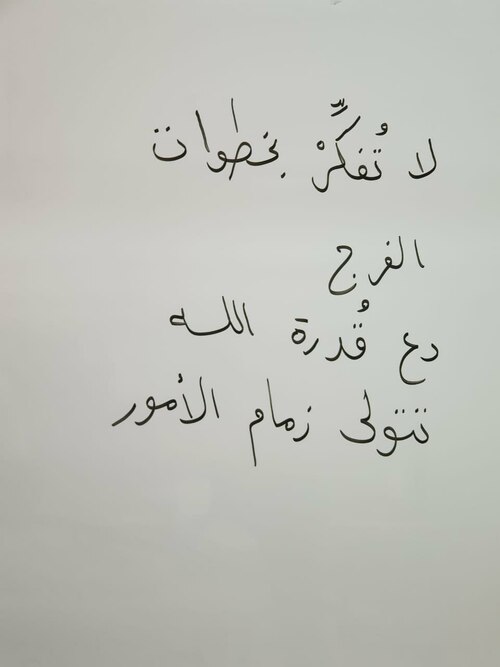 لا تُفكِّرْ بخطوات
الفرج
دع قُدرة الله
تتولى زمام الأمور